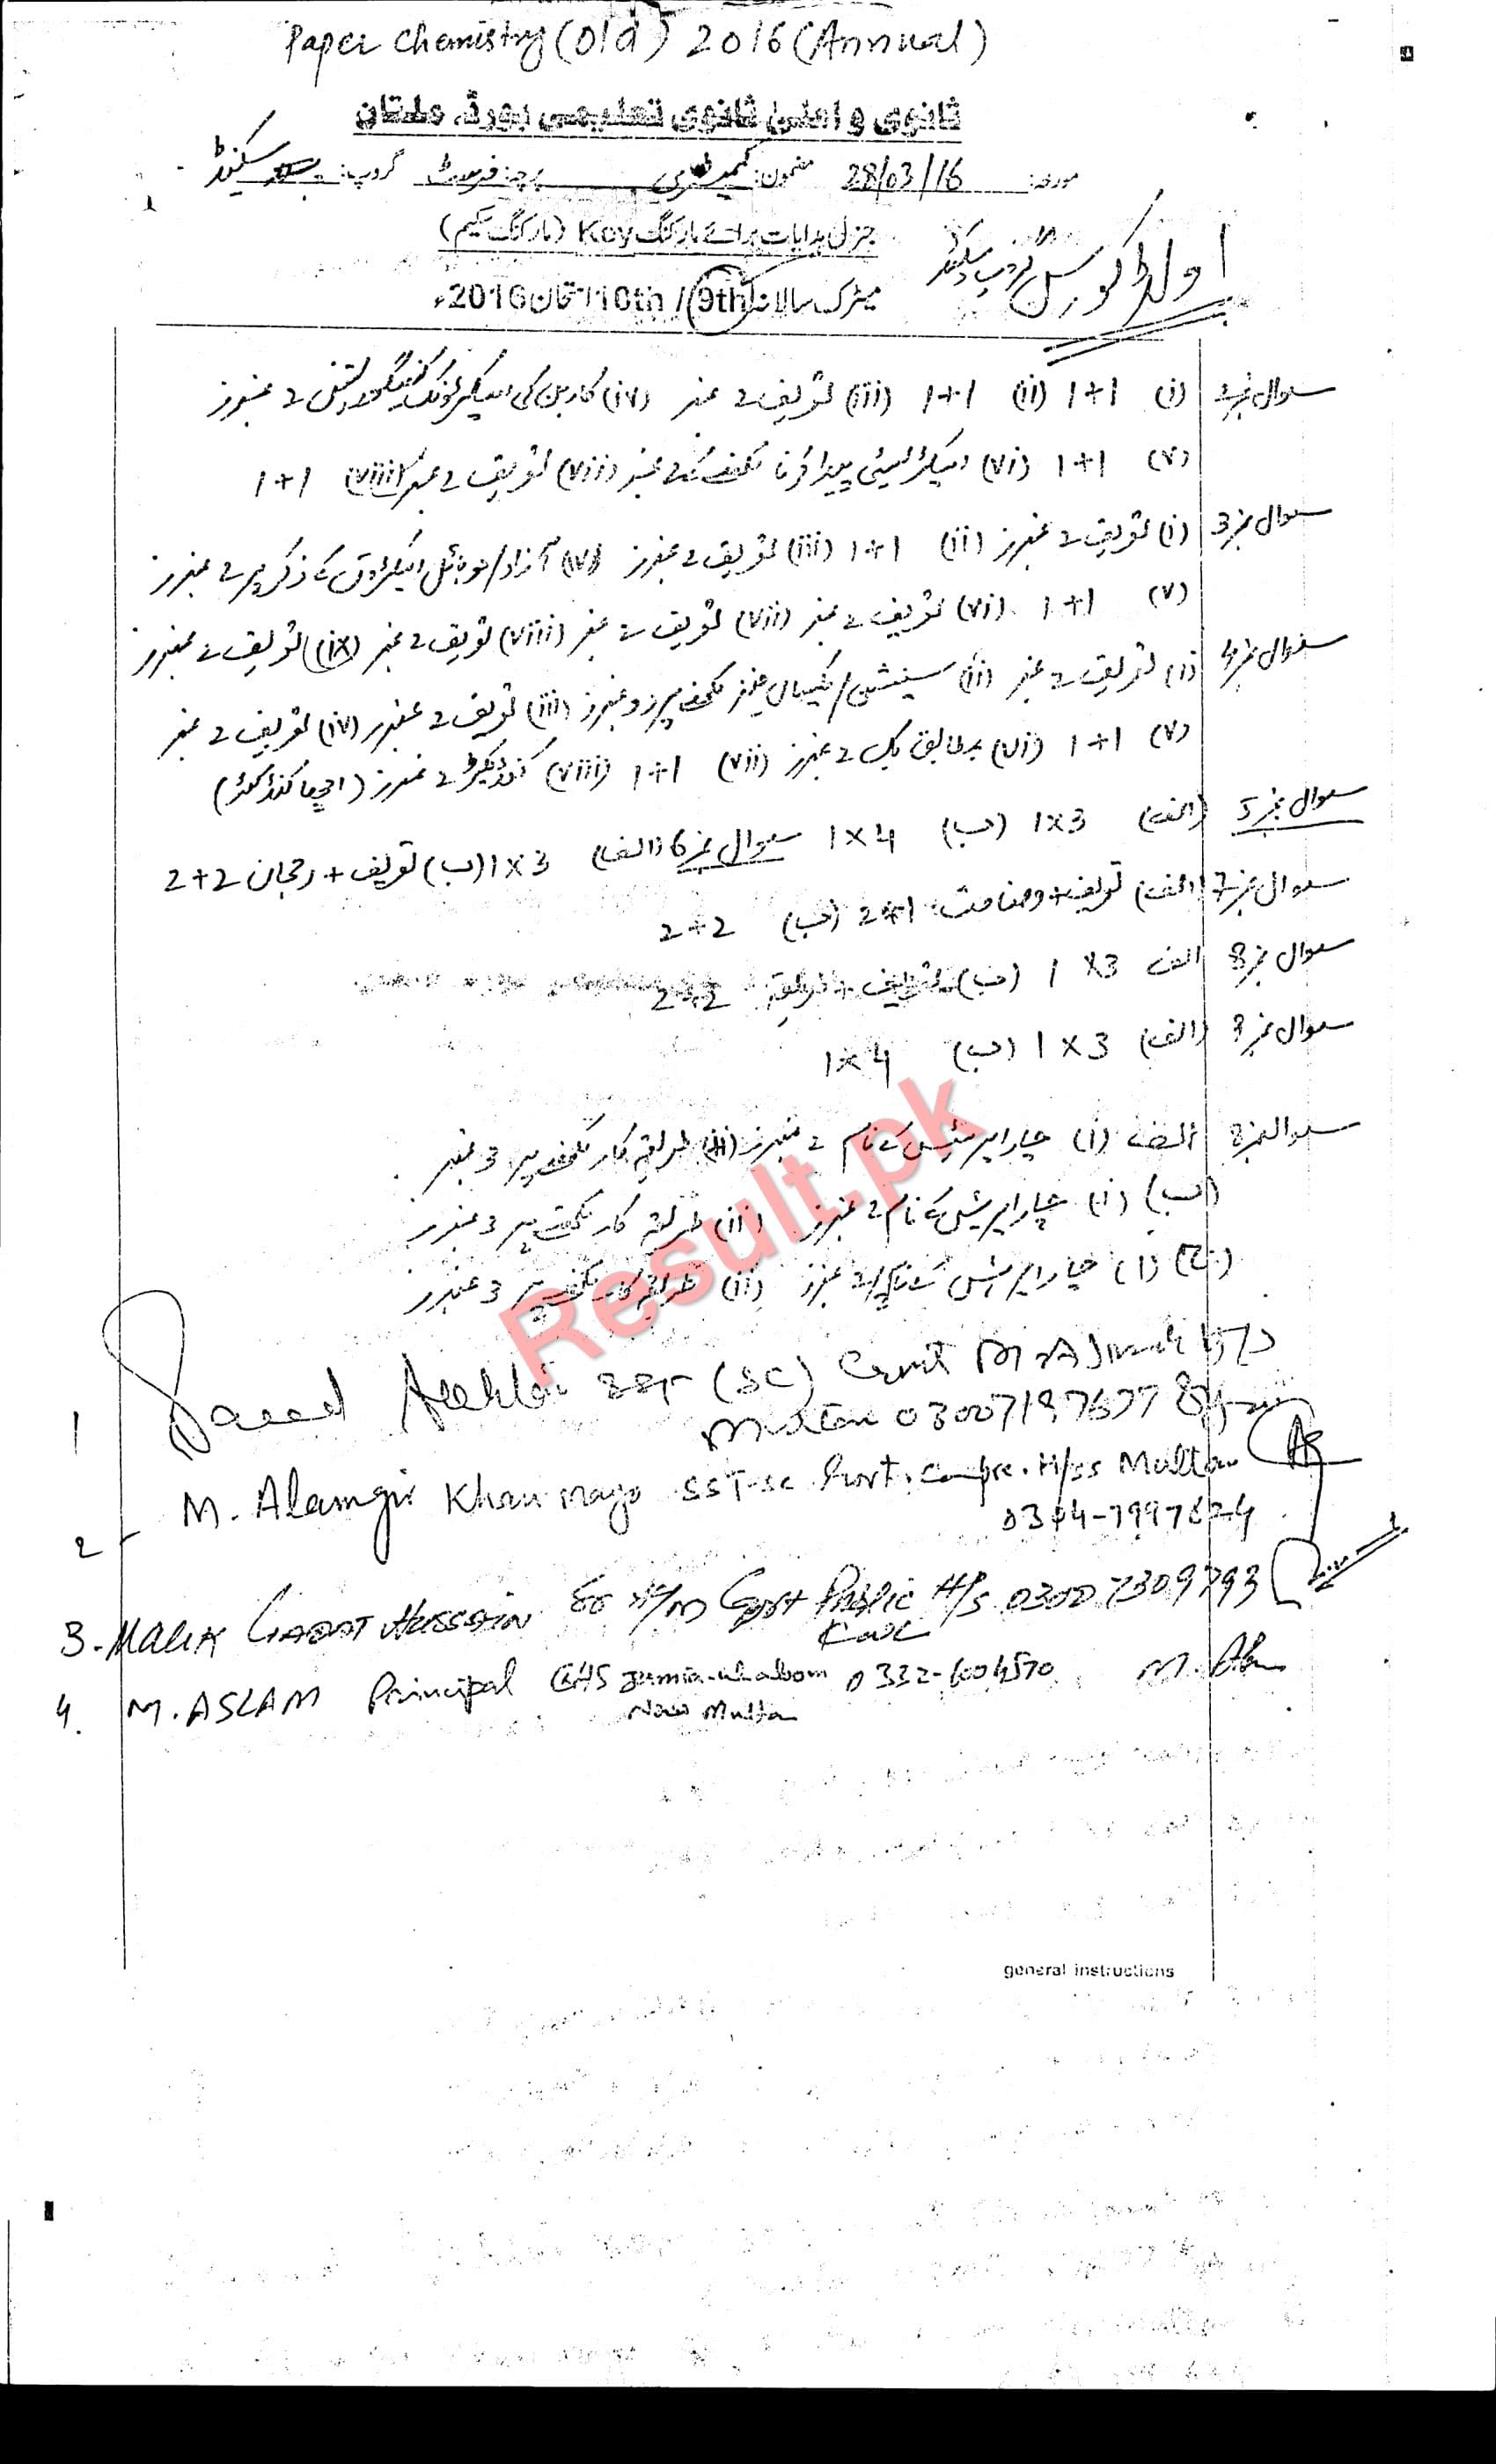 Paper Chemistry (Old) 2016 (Annual)
ثانوی و اعلیٰ ثانوی تعلیمی بورڈ، ملتان
مورخہ: 28/03/16 مضمون: کیمسٹری پرچہ: فرسٹ گروپ: سیکنڈ
اولڈ کورس گروپ سیکنڈ
جنرل ہدایات برائے مارکنگ Key (مارکنگ سکیم)
میٹرک سالانہ 9th / 10th امتحان 2016ء
سوال نمبر 2 (i) 1+1 (ii) 1+1 (iii) تعریف 2 نمبر (iv) کاربن کی الیکٹرونک کنفیگوریشن 2 نمبرز
(v) 1+1 (vi) الیکٹرسٹی پیدا کرنا لکھنے 2 نمبر (vii) تعریف 2 نمبر (viii) 1+1
سوال نمبر 3 (i) تعریف 2 نمبرز (ii) 1+1 (iii) تعریف 2 نمبرز (iv) آزاد/موبائل الیکٹرون کے ذکر پر 2 نمبرز
(v) 1+1 (vi) تعریف 2 نمبر (vii) تعریف 2 نمبر (viii) تعریف 2 نمبر (ix) تعریف 2 نمبرز
سوال نمبر 4 (i) تعریف 2 نمبر (ii) لکھنے پر دو نمبرز (iii) تعریف 2 نمبرز (iv) تعریف 2 نمبر
(v) 1+1 (vi) بمطابق بک 2 نمبرز (vii) 1+1 (viii) کنڈیکٹر 2 نمبرز (اچھا کنڈکٹر)
سوال نمبر 5 (الف) 1×3 (ب) 1×4 سوال نمبر 6 (الف) 1×3 (ب) تعریف + رجحان 2+2
سوال نمبر 7 (الف) تعریف + وضاحت 2+1 (ب) 2+2
سوال نمبر 8 الف 1×3 (ب) تعریف + طریقہ 2+2
سوال نمبر 9 (الف) 1×3 (ب) 1×4
سوال نمبر الف (i) چار اپریٹس کے نام 2 نمبرز (ii) طریقہ کار لکھنے پر 3 نمبر
(ب) (i) چار اپریٹس کے نام 2 نمبرز (ii) طریقہ کار لکھنے پر 3 نمبرز
(ج) (i) چار اپریٹس کے نام 2 نمبرز (ii) طریقہ کار لکھنے پر 3 نمبرز
Result.pk
1 Saeed SST (SC) Govt
Multan 03007197677
2 - M. Alamgir Khan SST-SC Govt. Compre. H/SS Multan
0304-7997624
3 - Malik Hussain H/M Govt Public H/S 0300 7309793
4. M. ASLAM Principal GHS Jamia-ul-aloom 0332-6004570 M.
New Multan
general instructions